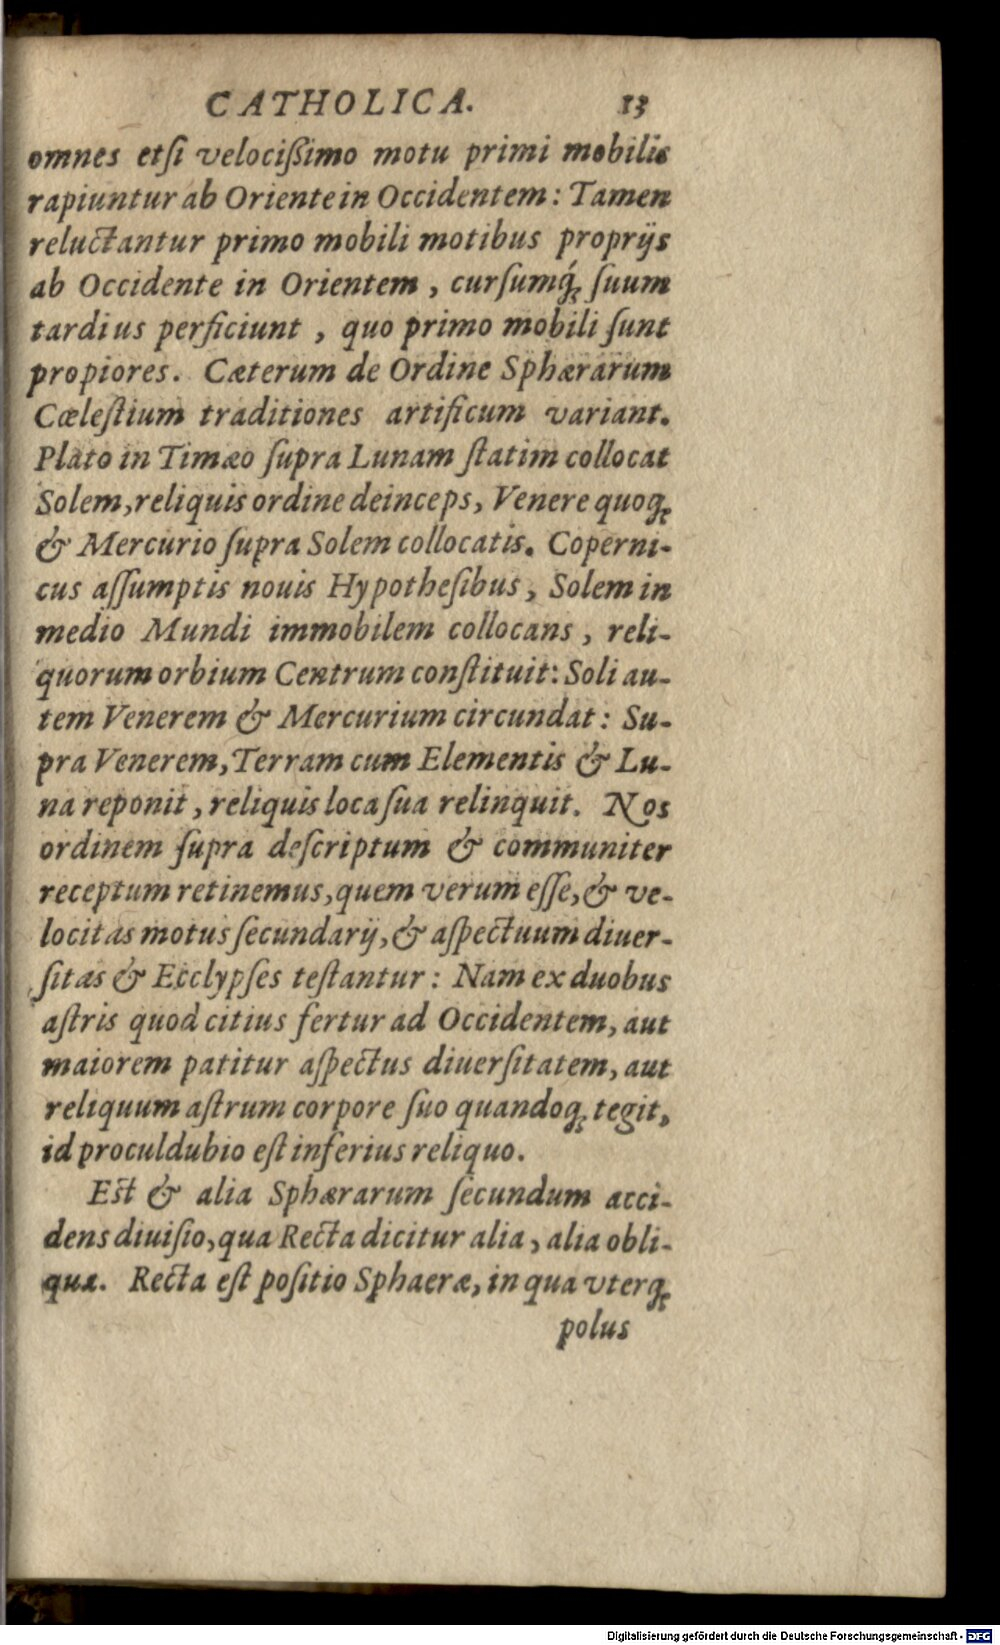 CATHOLICA. 13
omnes etſi velocißimo motu primi mobilis
rapiuntur ab Oriente in Occidentem: Tamen
reluctantur primo mobili motibus proprijs
ab Occidente in Orientem, curſumq́ꝫ ſuum
tardius perficiunt, quo primo mobili ſunt
propiores. Cæterum de Ordine Sphærarum
Cœleſtium traditiones artificum variant.
Plato in Timæo ſupra Lunam ſtatim collocat
Solem, reliquis ordine deinceps, Venere quoqꝫ
& Mercurio ſupra Solem collocatis. Coperni-
cus aſſumptis nouis Hypotheſibus, Solem in
medio Mundi immobilem collocans, reli-
quorum orbium Centrum conſtituit: Soli au-
tem Venerem & Mercurium circundat: Su-
pra Venerem, Terram cum Elementis & Lu-
na reponit, reliquis loca ſua relinquit. Nos
ordinem ſupra deſcriptum & communiter
receptum retinemus, quem verum eſſe, & ve-
locitas motus ſecundarij, & aſpectuum diuer-
ſitas & Ecclypſes teſtantur: Nam ex duobus
aſtris quod citius fertur ad Occidentem, aut
maiorem patitur aſpectus diuerſitatem, aut
reliquum aſtrum corpore ſuo quandoqꝫ tegit,
id proculdubio eſt inferius reliquo.
Eſt & alia Sphærarum ſecundum acci-
dens diuiſio, qua Recta dicitur alia, alia obli-
qua. Recta eſt poſitio Sphaeræ, in qua vterqꝫ
polus
Digitalisierung gefördert durch die Deutsche Forschungsgemeinschaft - DFG